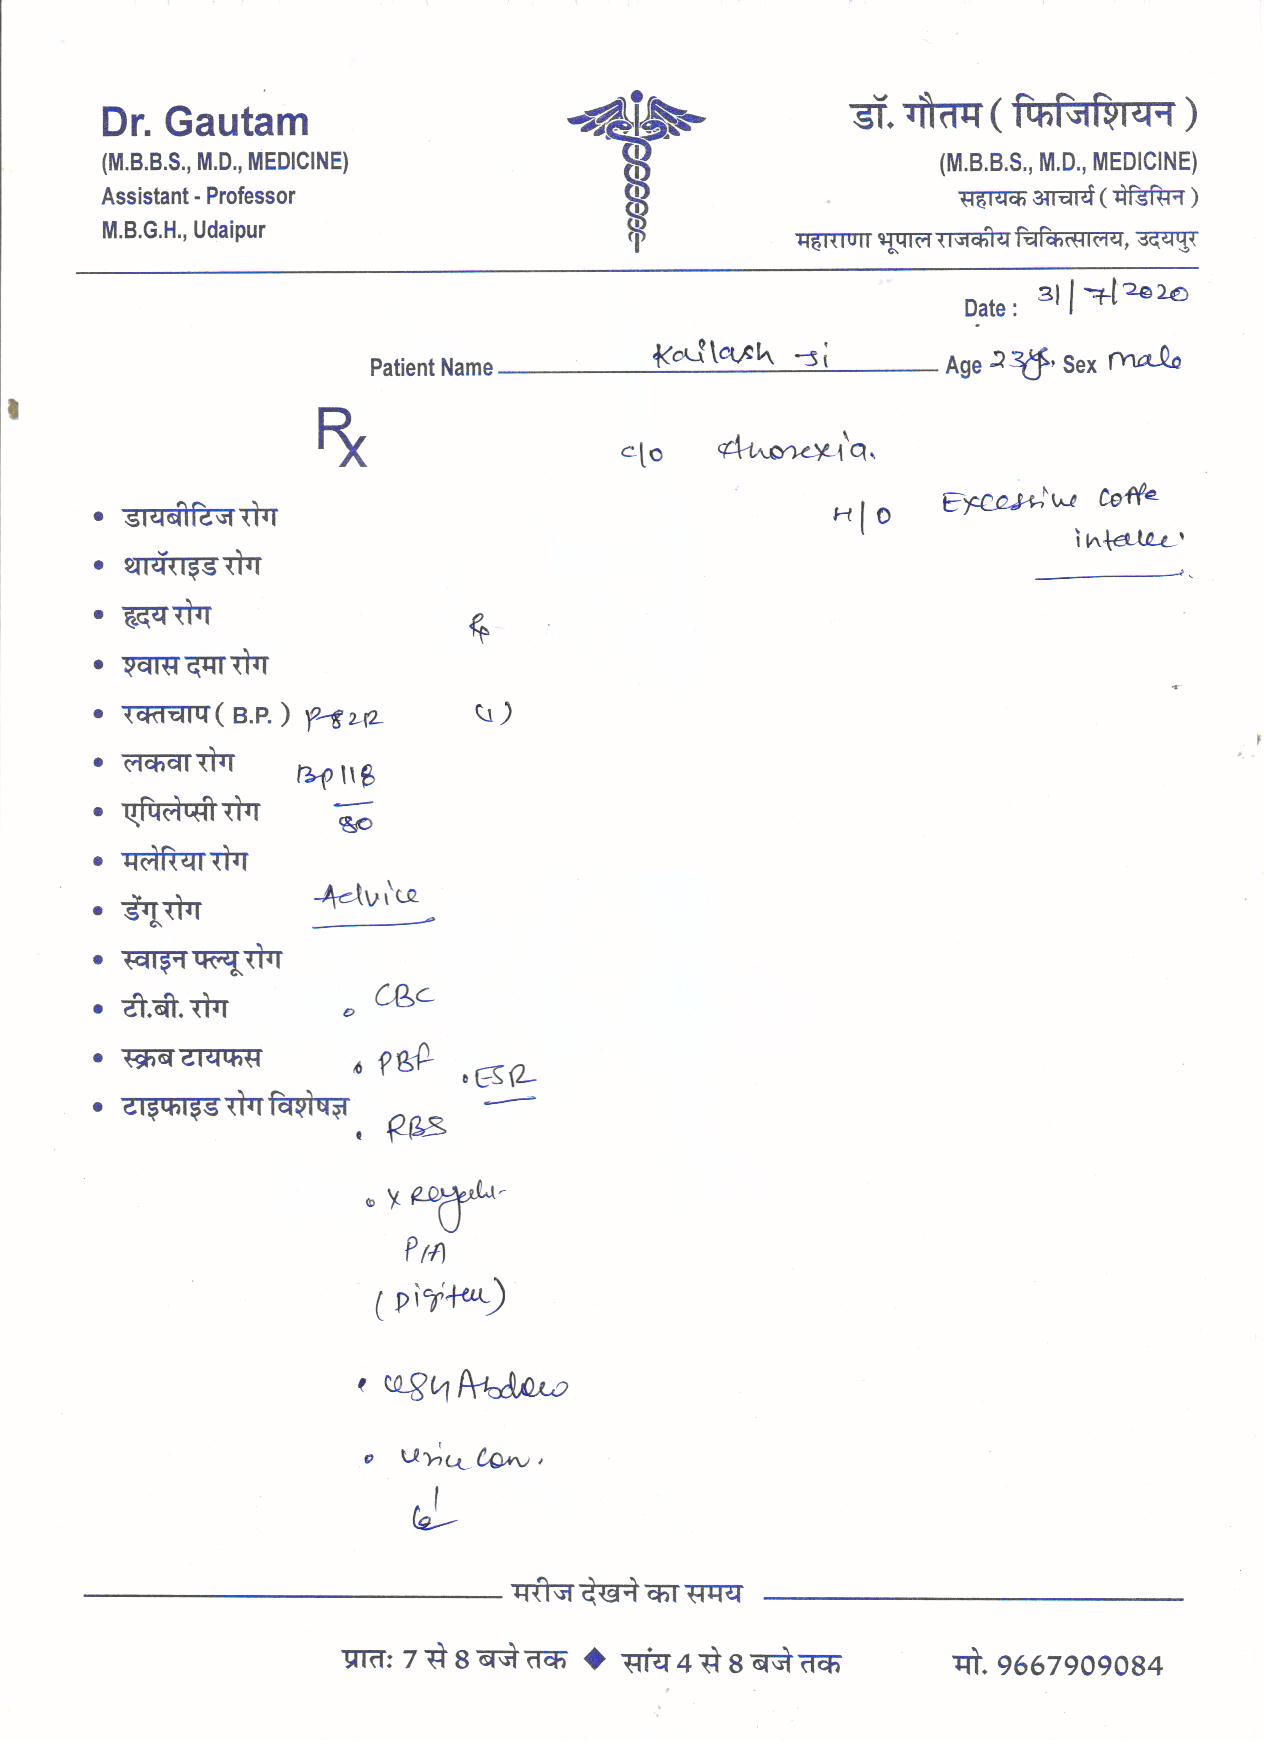 Dr. Gautam
(M.B.B.S., M.D., MEDICINE)
Assistant - Professor
M.B.G.H., Udaipur
डॉ. गौतम ( फिजिशियन )
(M.B.B.S., M.D., MEDICINE)
सहायक आचार्य ( मेडिसिन )
महाराणा भूपाल राजकीय चिकित्सालय, उदयपुर
Date : 31/7/2020
Patient Name Kailash Ji Age 23 Sex male
Rx
c/o Anorexia.
H/O Excessive Coffe
• डायबीटिज रोग
• थायॅराइड रोग
• हृदय रोग
• श्वास दमा रोग
• रक्तचाप ( B.P. )
(1)
• लकवा रोग
BP 118
80
• एपिलेप्सी रोग
• मलेरिया रोग
• डेंगू रोग
Advice
• स्वाइन फ्ल्यू रोग
• टी.बी. रोग
• CBC
• स्क्रब टायफस
• PBF
• ESR
• टाइफाइड रोग विशेषज्ञ
• RBS
• X Ray
P/A
• Urine
मरीज देखने का समय
प्रातः 7 से 8 बजे तक ◆ सांय 4 से 8 बजे तक
मो. 9667909084